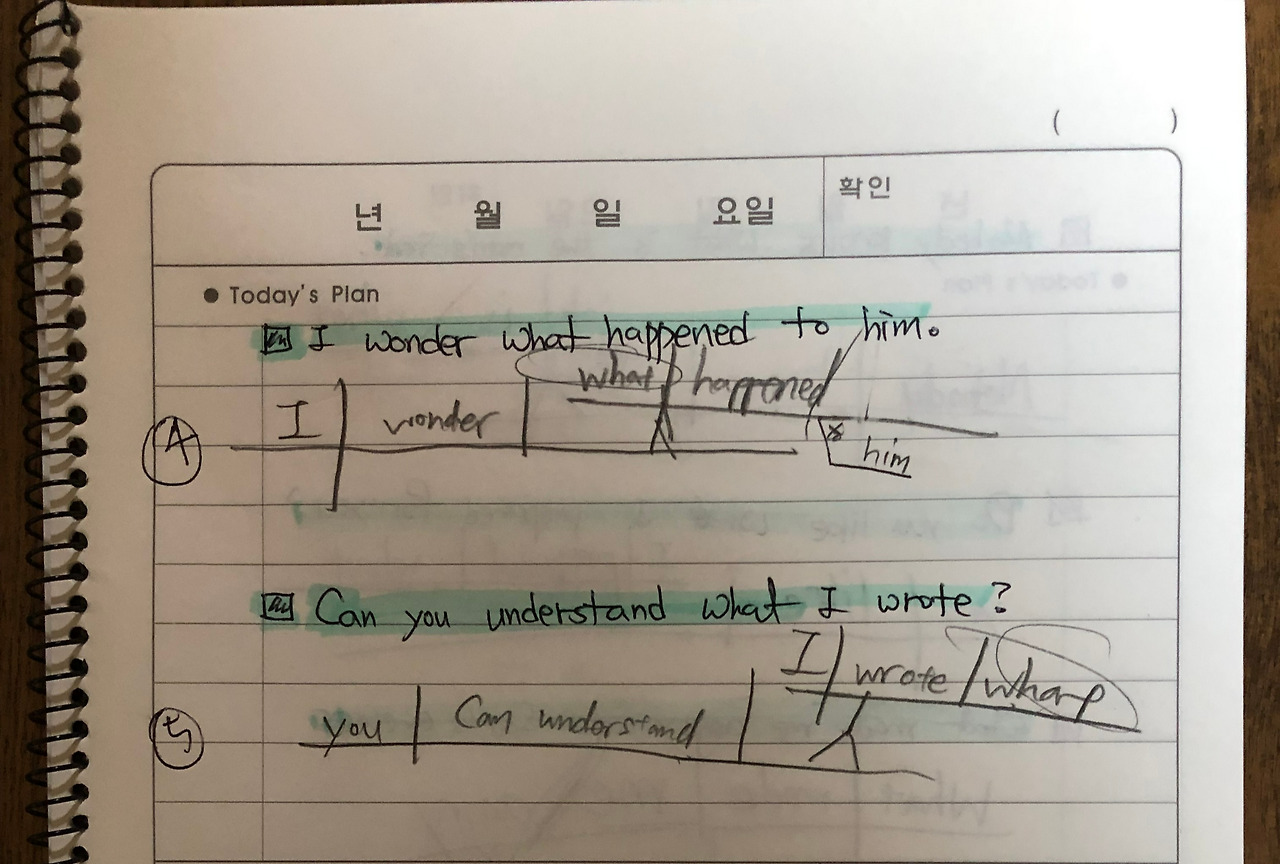 ( )
년 월 일 요일 확인
● Today's Plan
I wonder what happened to him.
what happened
I wonder
him
Can you understand what I wrote?
I wrote what
you Can understand